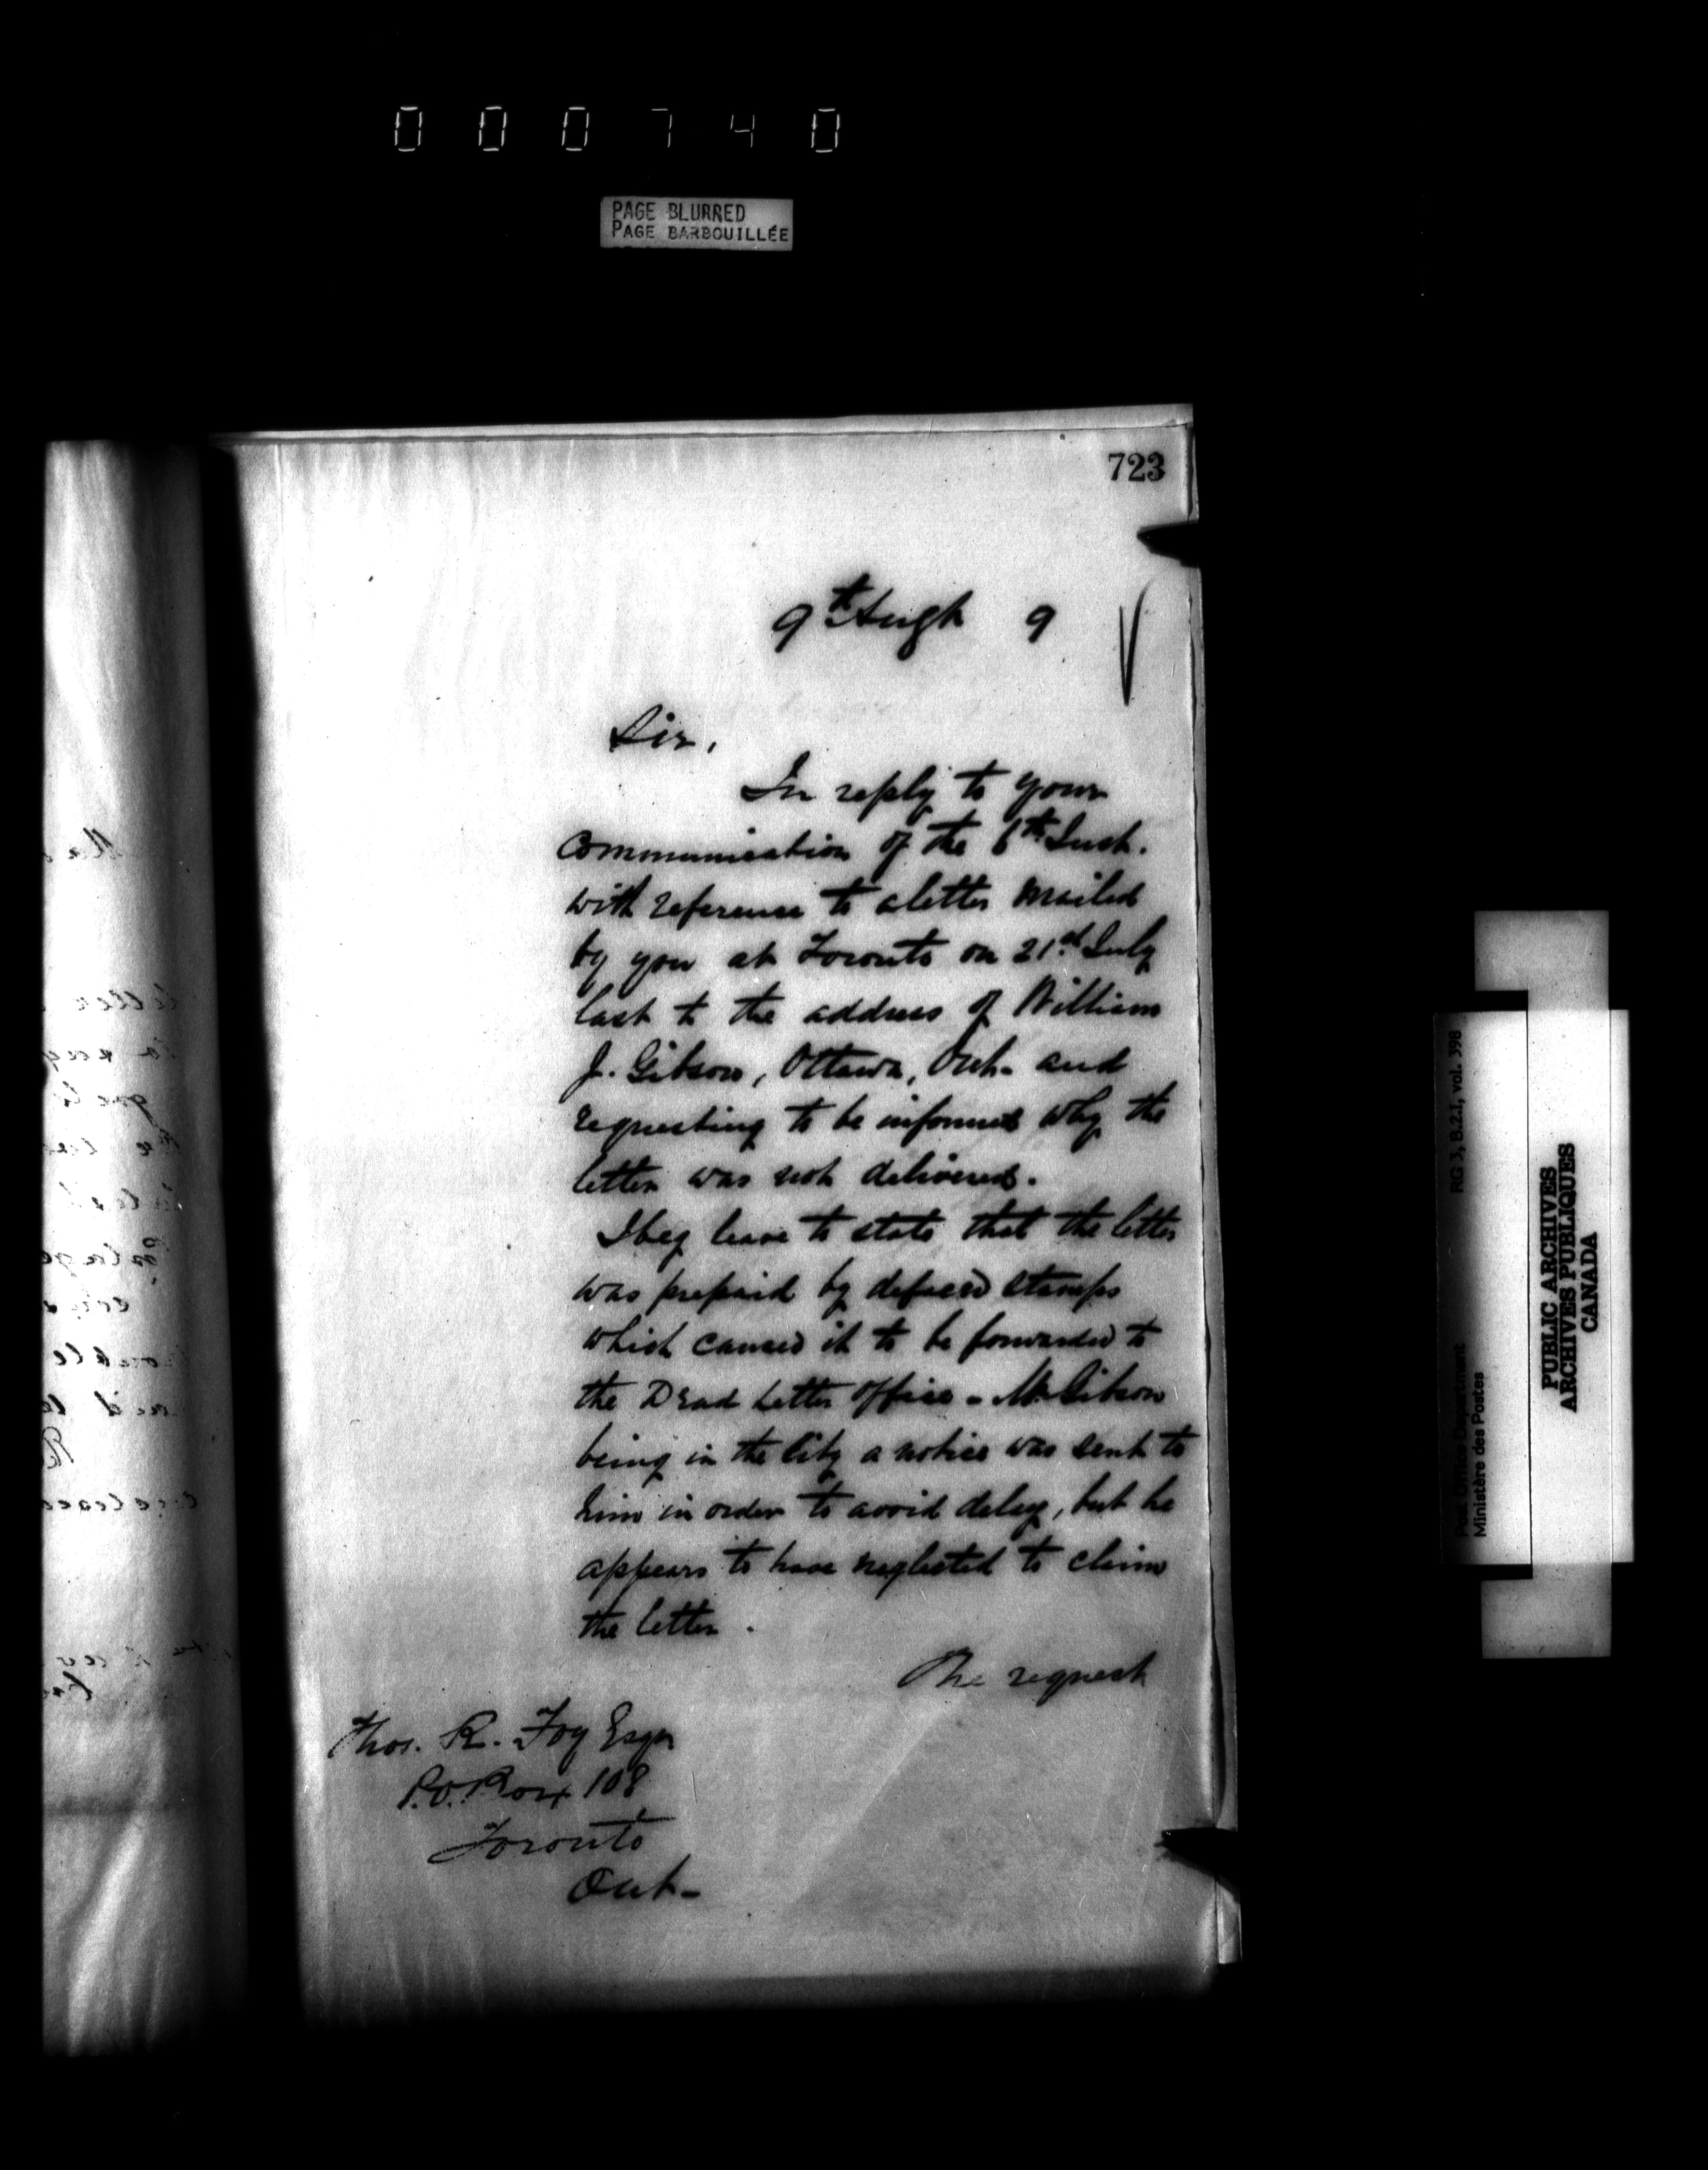 000740
PAGE BLURRED
PAGE BARBOUILLÉE
723
9th Augt 9
Sir,
In reply to your
communication of the 6th Inst.
with reference to a letter mailed
by you at Toronto on 21st July
last to the address of William
J. Gibson, Ottawa, Ont. and
requesting to be informed why the
letter was not delivered.
I beg leave to state that the letter
was prepaid by defaced stamps
which caused it to be forwarded to
the Dead Letter Office - Mr Gibson
being in the City a notice was sent to
him in order to avoid delay, but he
appears to have neglected to claim
the letter.
The request
Thos. R. Foy Esqr
P.O. Box 108
Toronto
Ont-
RG 3, B.2.1, vol. 398
Post Office Department
Ministère des Postes
PUBLIC ARCHIVES
ARCHIVES PUBLIQUES
CANADA